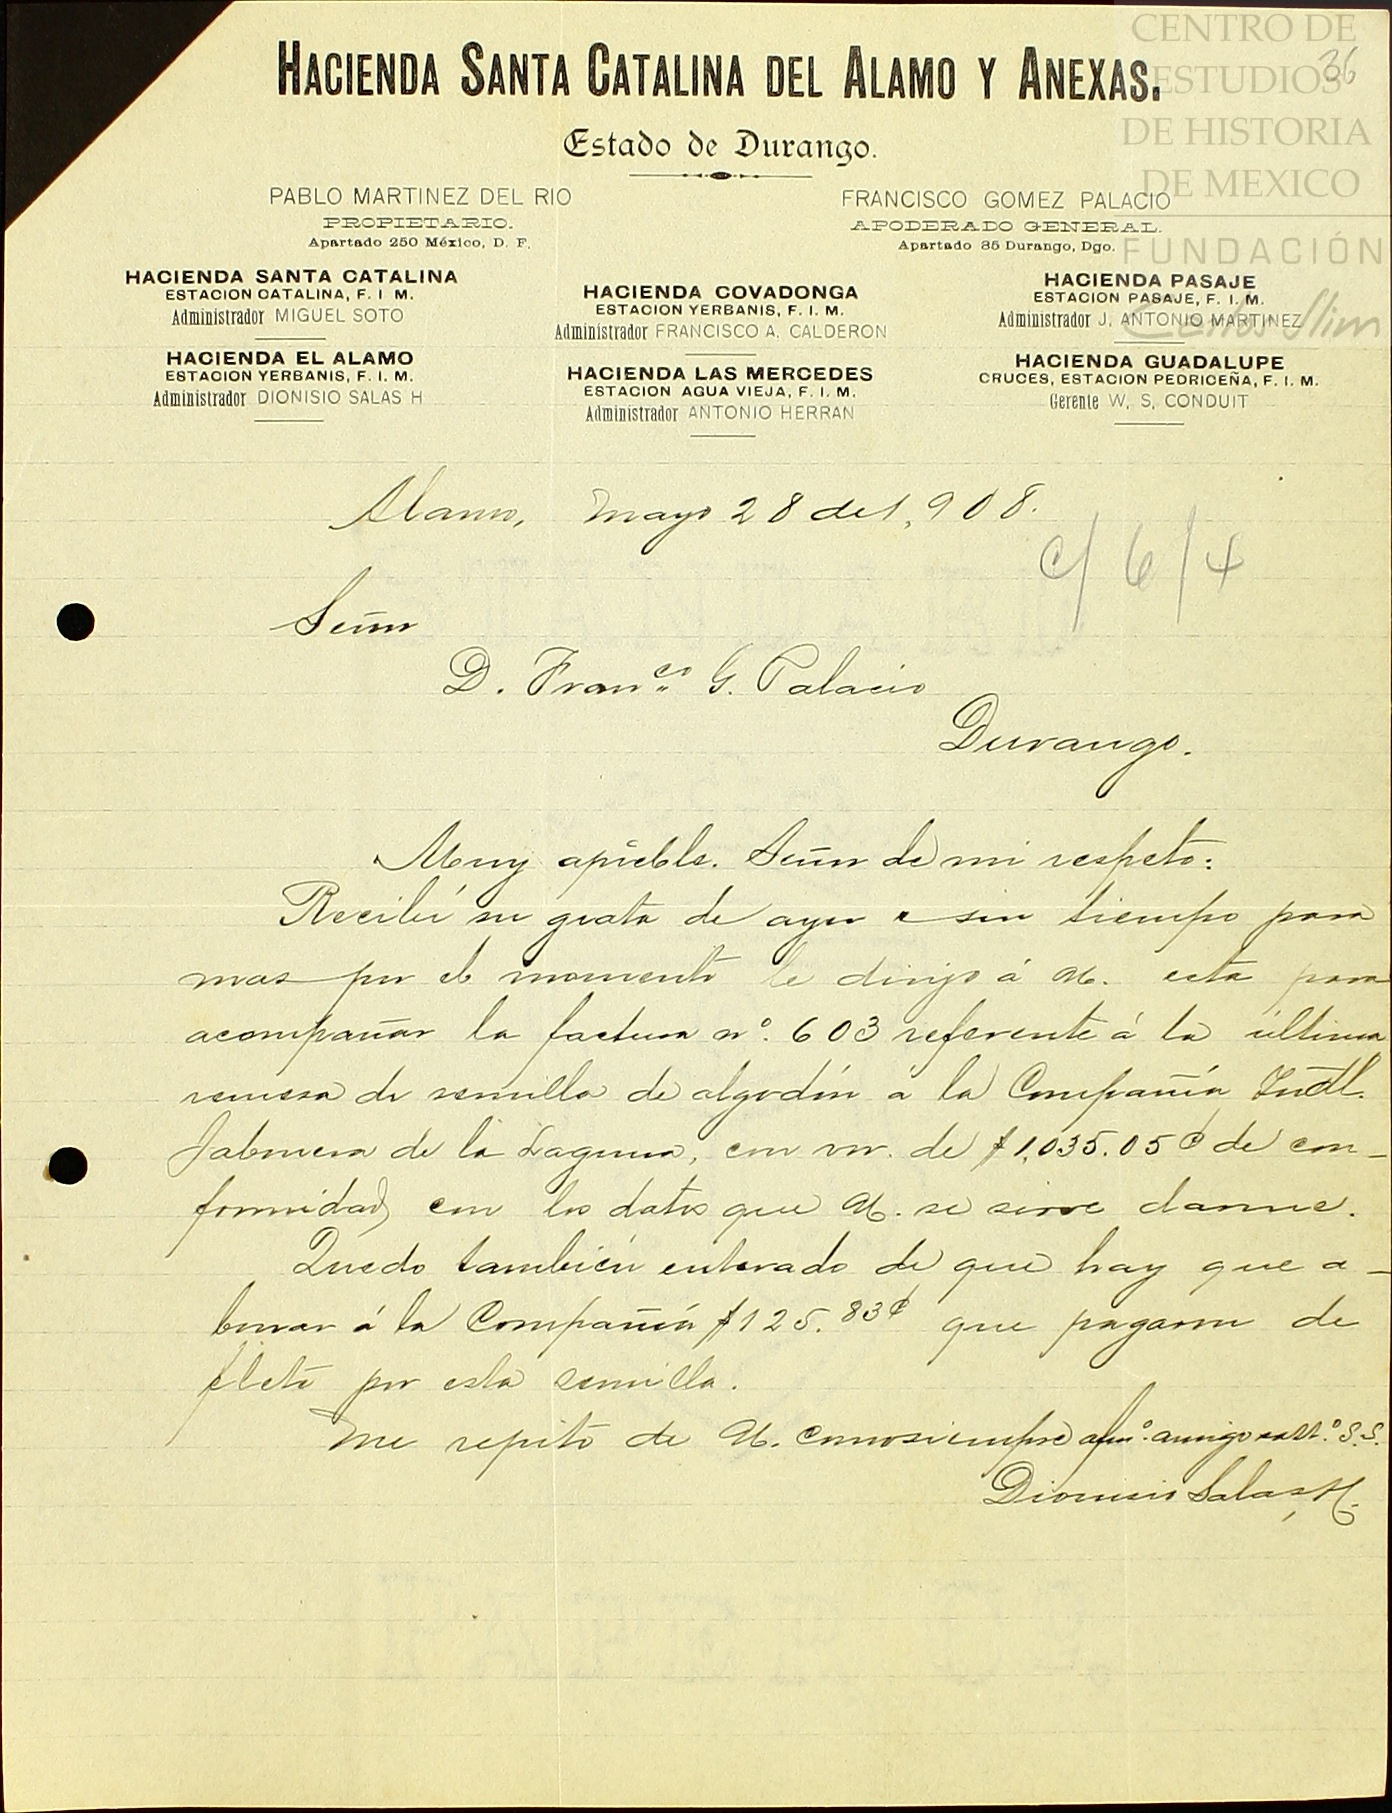 CENTRO DE
ESTUDIOS
DE HISTORIA
DE MEXICO
FUNDACIÓN
Carlos Slim
36
HACIENDA SANTA CATALINA DEL ALAMO Y ANEXAS.
Estado de Durango.
PABLO MARTINEZ DEL RIO
PROPIETARIO.
Apartado 250 México, D. F.
FRANCISCO GOMEZ PALACIO
APODERADO GENERAL.
Apartado 35 Durango, Dgo.
HACIENDA SANTA CATALINA
ESTACION CATALINA, F. I. M.
Administrador MIGUEL SOTO
HACIENDA EL ALAMO
ESTACION YERBANIS, F. I. M.
Administrador DIONISIO SALAS H
HACIENDA COVADONGA
ESTACION YERBANIS, F. I. M.
Administrador FRANCISCO A. CALDERON
HACIENDA LAS MERCEDES
ESTACION AGUA VIEJA, F. I. M.
Administrador ANTONIO HERRAN
HACIENDA PASAJE
ESTACION PASAJE, F. I. M.
Administrador J. ANTONIO MARTINEZ
HACIENDA GUADALUPE
CRUCES, ESTACION PEDRICEÑA, F. I. M.
Gerente W. S. CONDUIT
Alamo, Mayo 28 de 1,908.
c/ 6/4
Señor
D. Fran.co G. Palacio
Durango.
Muy apreble. Señor de mi respeto:
Recibí su grata de ayer e sin tiempo para
mas por el momento le dirijo á U. esta para
acompañar la factura nº. 603 referente á la última
remesa de semilla de algodón á la Compañía Indl.
Jabonera de la Laguna, con vor. de $1,035.05 ¢ de con-
formidad con los datos que U. se sirve darme.
Quedo también enterado de que hay que a-
bonar á la Compañía $125.83¢ que pagaron de
flete por esta semilla.
Me repito de U. como siempre afmo. amigo att.º S.S.
Dionisio Salas H.